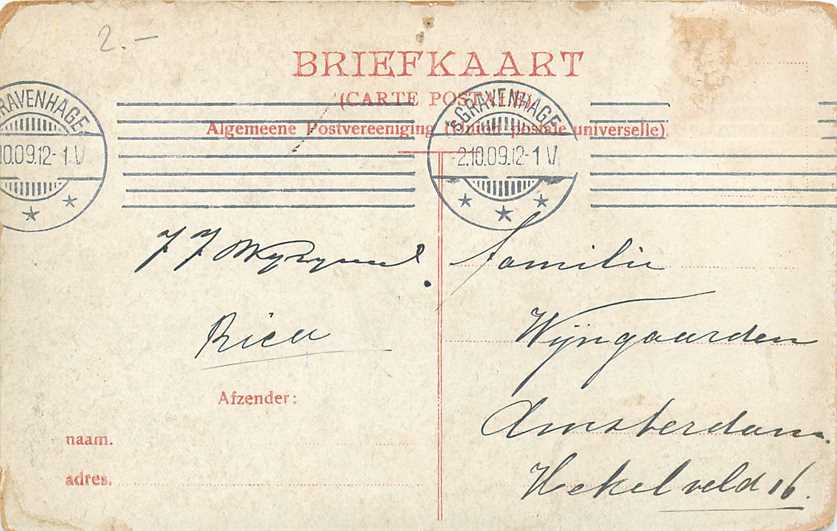 2.-
BRIEFKAART
(CARTE POSTALE)
Algemeene Postvereeniging (Union postale universelle)
'SGRAVENHAGE
10.09.12-1 V
'SGRAVENHAGE
-2.10.09.12-1 V
J J
Familie
Wijngaarden
Amsterdam.
Hekelveld 16.
Afzender:
naam.
adres.